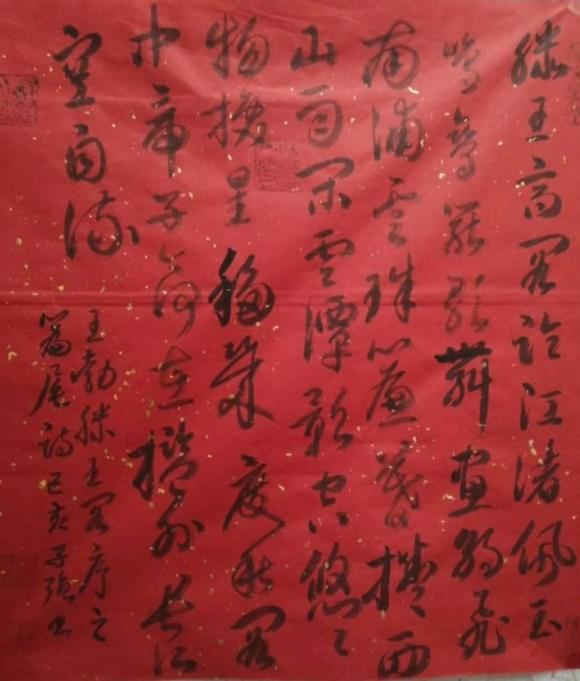 滕王高阁临江渚佩玉
鸣鸾罢歌舞画朝飞
南浦云珠簾暮捲西
山雨闲云潭影悠々
物换星移几度秋阁
中帝子何在槛外长江
空自流
王勃滕王阁序之
篇尾诗己亥子强书